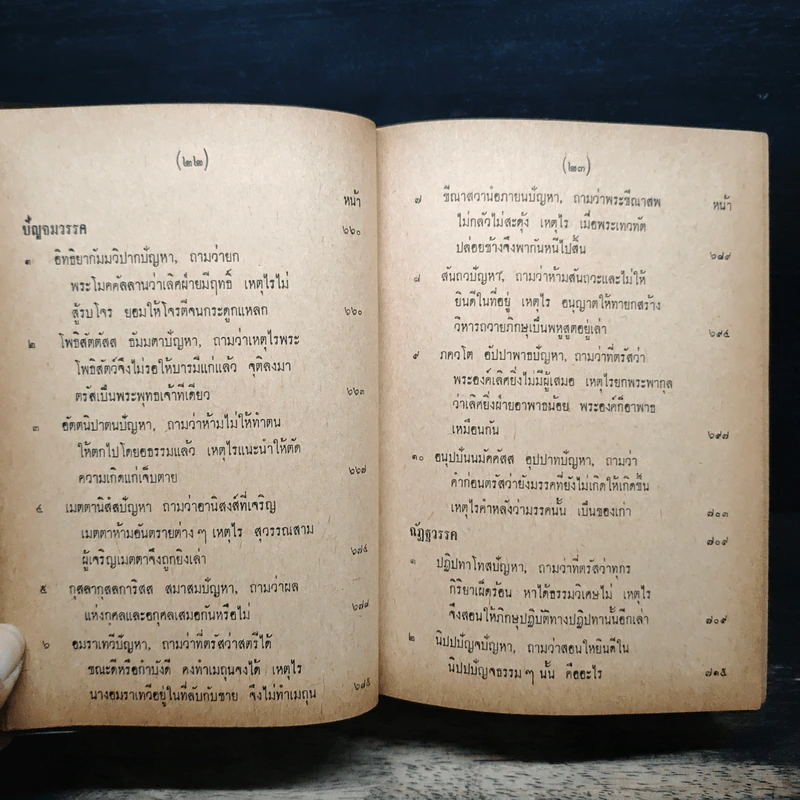 (๒๒)
หน้า
ปัญจมวรรค ๖๖๐
๑ อิทธิยากัมมวิปากปัญหา, ถามว่ายก
พระโมคคัลลานว่าเลิศฝ่ายมีฤทธิ์ เหตุไรไม่
สู้รบโจร ยอมให้โจรตีจนกระดูกแหลก ๖๖๐
๒ โพธิสัตตัสส ธัมมตาปัญหา, ถามว่าเหตุไรพระ
โพธิสัตว์จึงไม่รอให้บารมีแก่แล้ว จุติลงมา
ตรัสเป็นพระพุทธเจ้าทีเดียว ๖๖๓
๓ อัตตนิปาตนปัญหา, ถามว่าห้ามไม่ให้ทำตน
ให้ตกไปโดยอธรรมแล้ว เหตุไรแนะนำให้ตัด
ความเกิดแก่เจ็บตาย ๖๖๗
๔ เมตตานิสังสปัญหา ถามว่าอานิสงส์ที่เจริญ
เมตตาห้ามอันตรายต่าง ๆ เหตุไร สุวรรณสาม
ผู้เจริญเมตตาจึงถูกยิงเล่า ๖๗๔
๕ กุสลากุสลการิสส สมาสมปัญหา, ถามว่าผล
แห่งกุศลและอกุศลเสมอกันหรือไม่ ๖๗๗
๖ อมราเทวีปัญหา, ถามว่าที่ตรัสว่าสตรีได้
ขณะดีหรือกำบังดี คงทำเมถุนจงได้ เหตุไร
นางอมราเทวีอยู่ในที่ลับกับชาย จึงไม่ทำเมถุน ๖๘๕
(๒๓)
หน้า
๗ ขีณาสวานํอภายนปัญหา, ถามว่าพระขีณาสพ
ไม่กลัวไม่สะดุ้ง เหตุไร เมื่อพระเทวทัต
ปล่อยช้างจึงพากันหนีไปสิ้น ๖๘๙
๘ สันถวปัญหา, ถามว่าห้ามสันถวะและไม่ให้
ยินดีในที่อยู่ เหตุไร อนุญาตให้ทายกสร้าง
วิหารถวายภิกษุเป็นพหูสูตอยู่เล่า ๖๙๕
๙ ภควโต อัปปาพาธปัญหา, ถามว่าที่ตรัสว่า
พระองค์เลิศยิ่งไม่มีผู้เสมอ เหตุไรยกพระพากุล
ว่าเลิศยิ่งฝ่ายอาพาธน้อย พระองค์ก็อาพาธ
เหมือนกัน ๖๙๗
๑๐ อนุปปันนมัคคัสส อุปปาทปัญหา, ถามว่า
คำก่อนตรัสว่ายังมรรคที่ยังไม่เกิดให้เกิดขึ้น
เหตุไรคำหลังว่ามรรคนั้น เป็นของเก่า ๗๐๓
ฉัฏฐวรรค ๗๐๙
๑ ปฏิปทาโทสปัญหา, ถามว่าที่ตรัสว่าทุกร
กิริยาเผ็ดร้อน หาได้ธรรมวิเศษไม่ เหตุไร
จึงสอนให้ภิกษุปฏิบัติทางปฏิปทานั้นอีกเล่า ๗๐๙
๒ นิปปปัญจปัญหา, ถามว่าสอนให้ยินดีใน
นิปปปัญจธรรม ๆ นั้น คืออะไร ๗๑๕